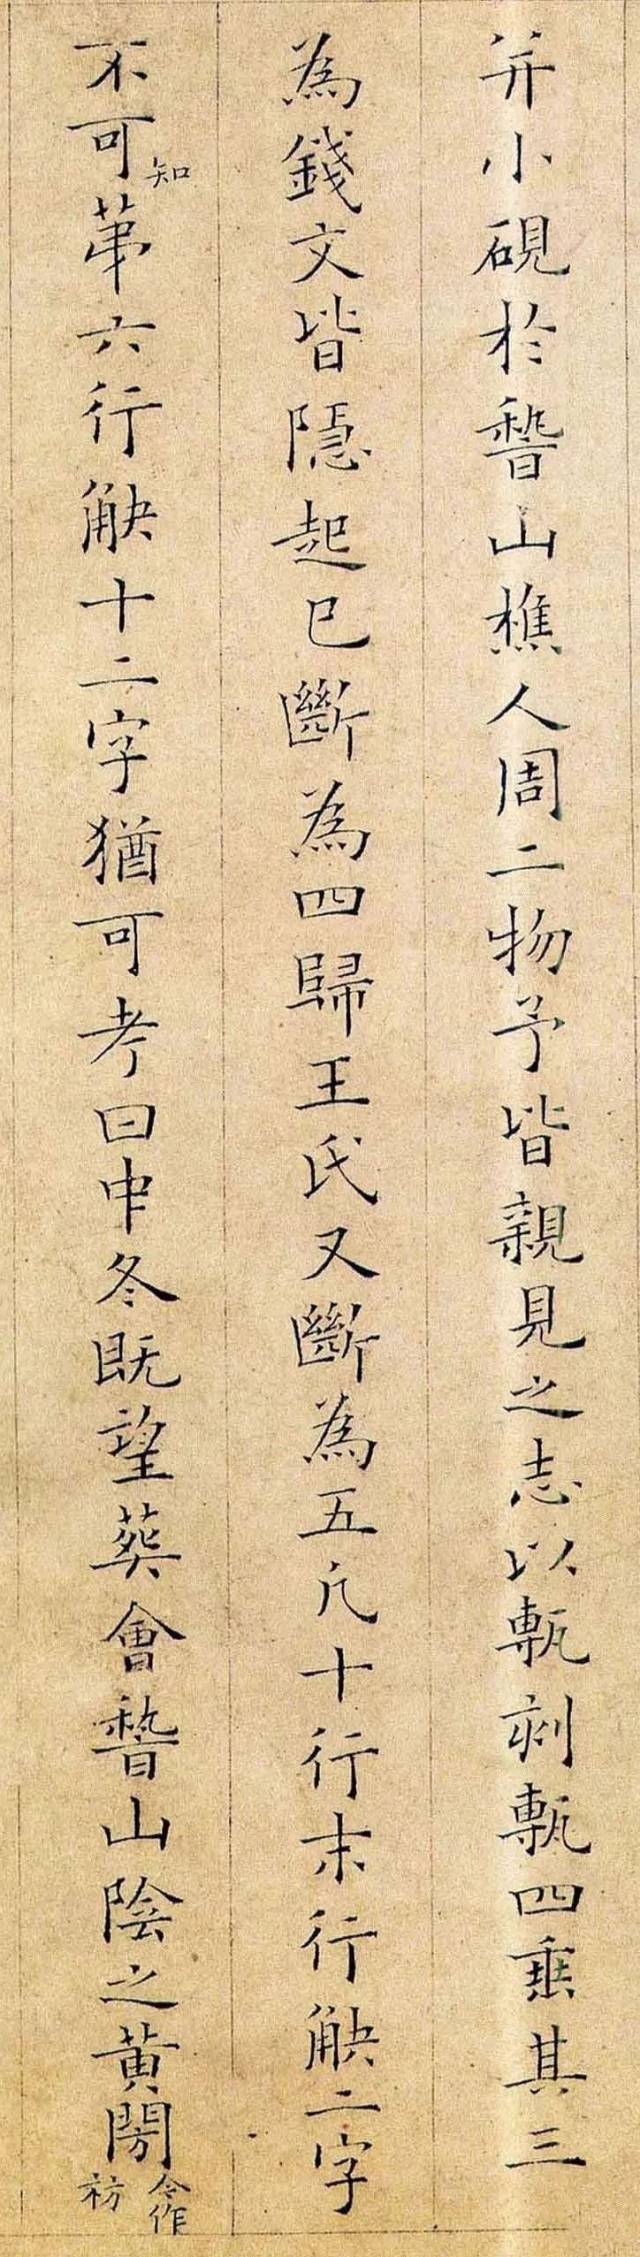 并小硯於稽山樵人周二物予皆親見之志以甎刻甎四垂其三
為錢文皆隱起已斷為四歸王氏又斷為五凡十行末行觖二字
不可知第六行觖十二字猶可考曰中冬既望葬會稽山陰之黃閍今作祊